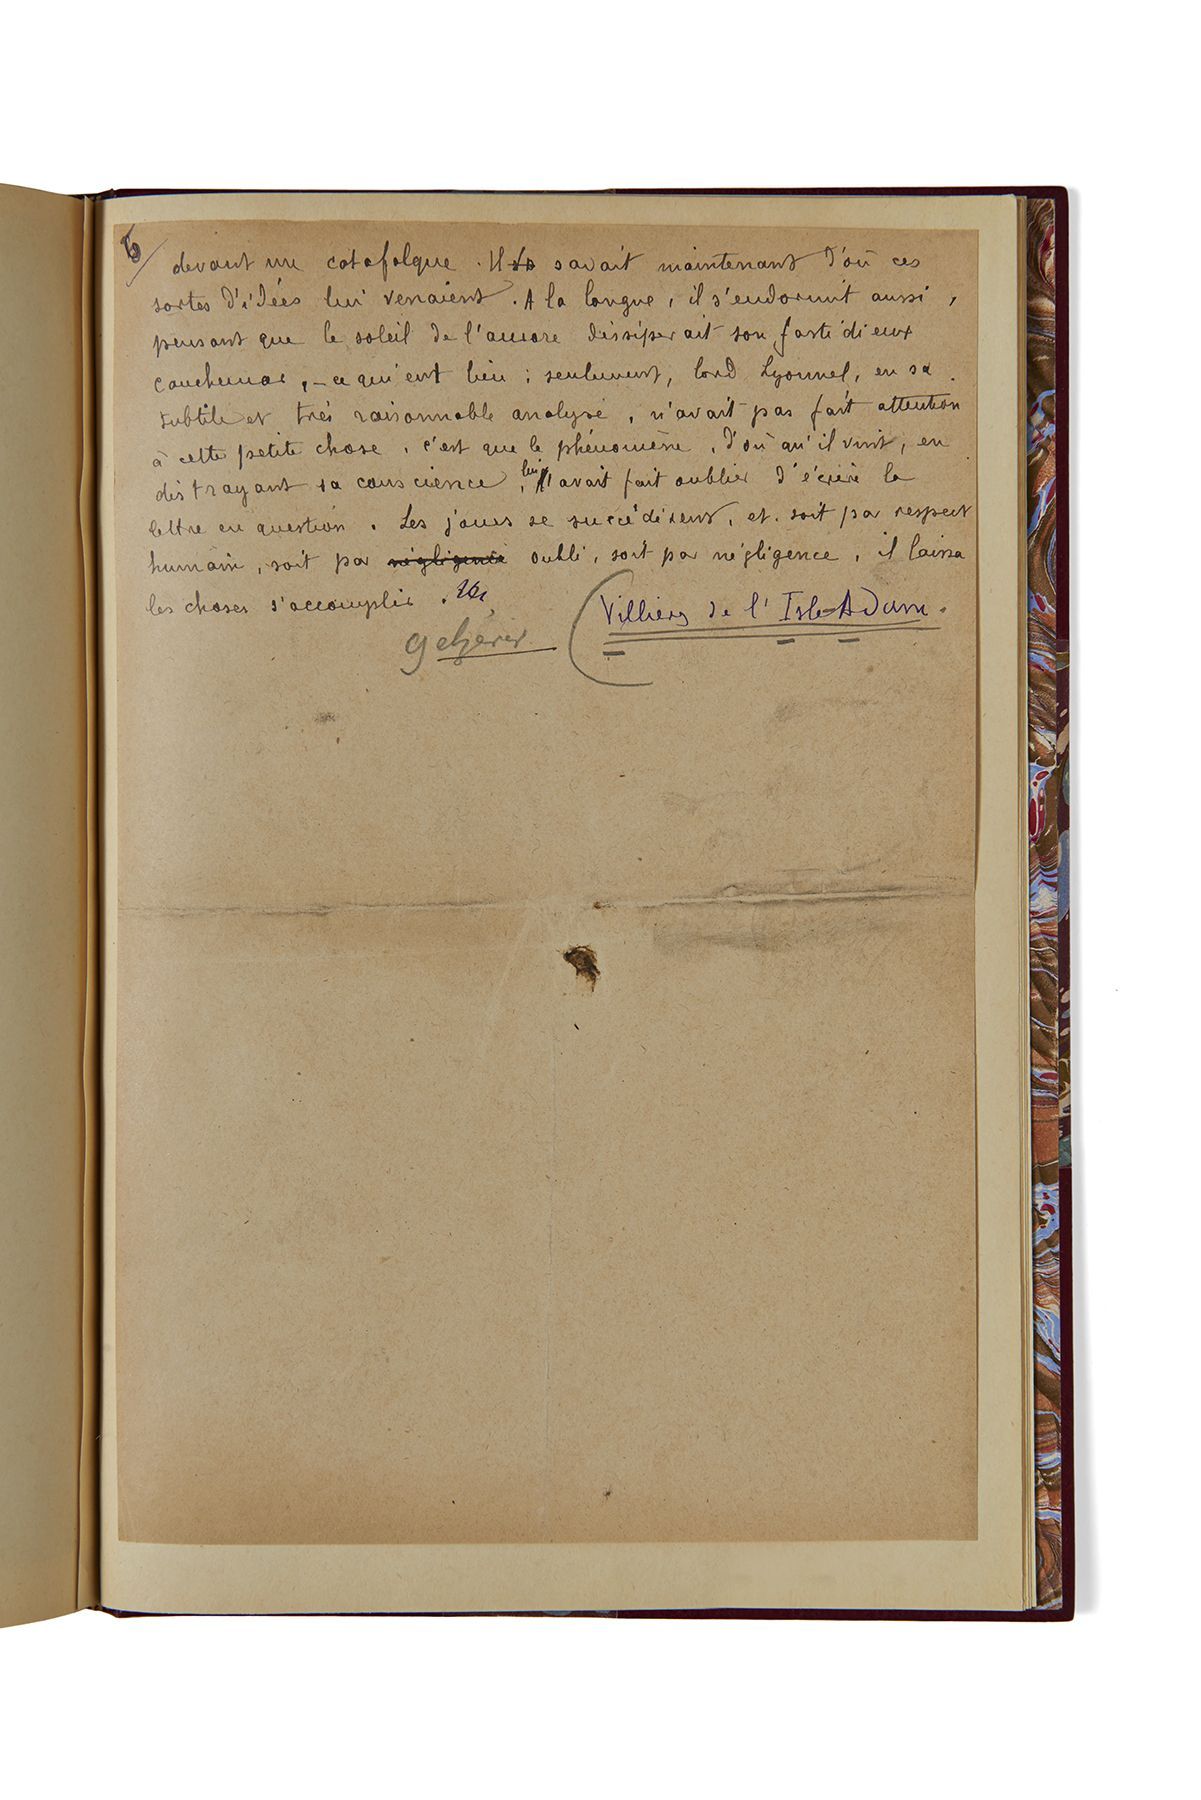 6/
devant un catafalque. Il savait maintenant d'où ces
sortes d'idées lui venaient. A la longue, il s'endormit aussi,
pensant que le soleil de l'aurore dissiperait son fastidieux
cauchemar, – ce qui eut lieu ; seulement, lord Lyonnel, en sa
subtile et très raisonnable analyse, n'avait pas fait attention
à cette petite chose, c'est que le phénomène, d'où qu'il vint, en
distrayant sa conscience, lui avait fait oublier d'écrire la
lettre en question. Les jours se succédèrent, et, soit par respect
humain, soit par négligence oubli, soit par négligence, il laissa
les choses s'accomplir.
Villiers de l'Isle-Adam.